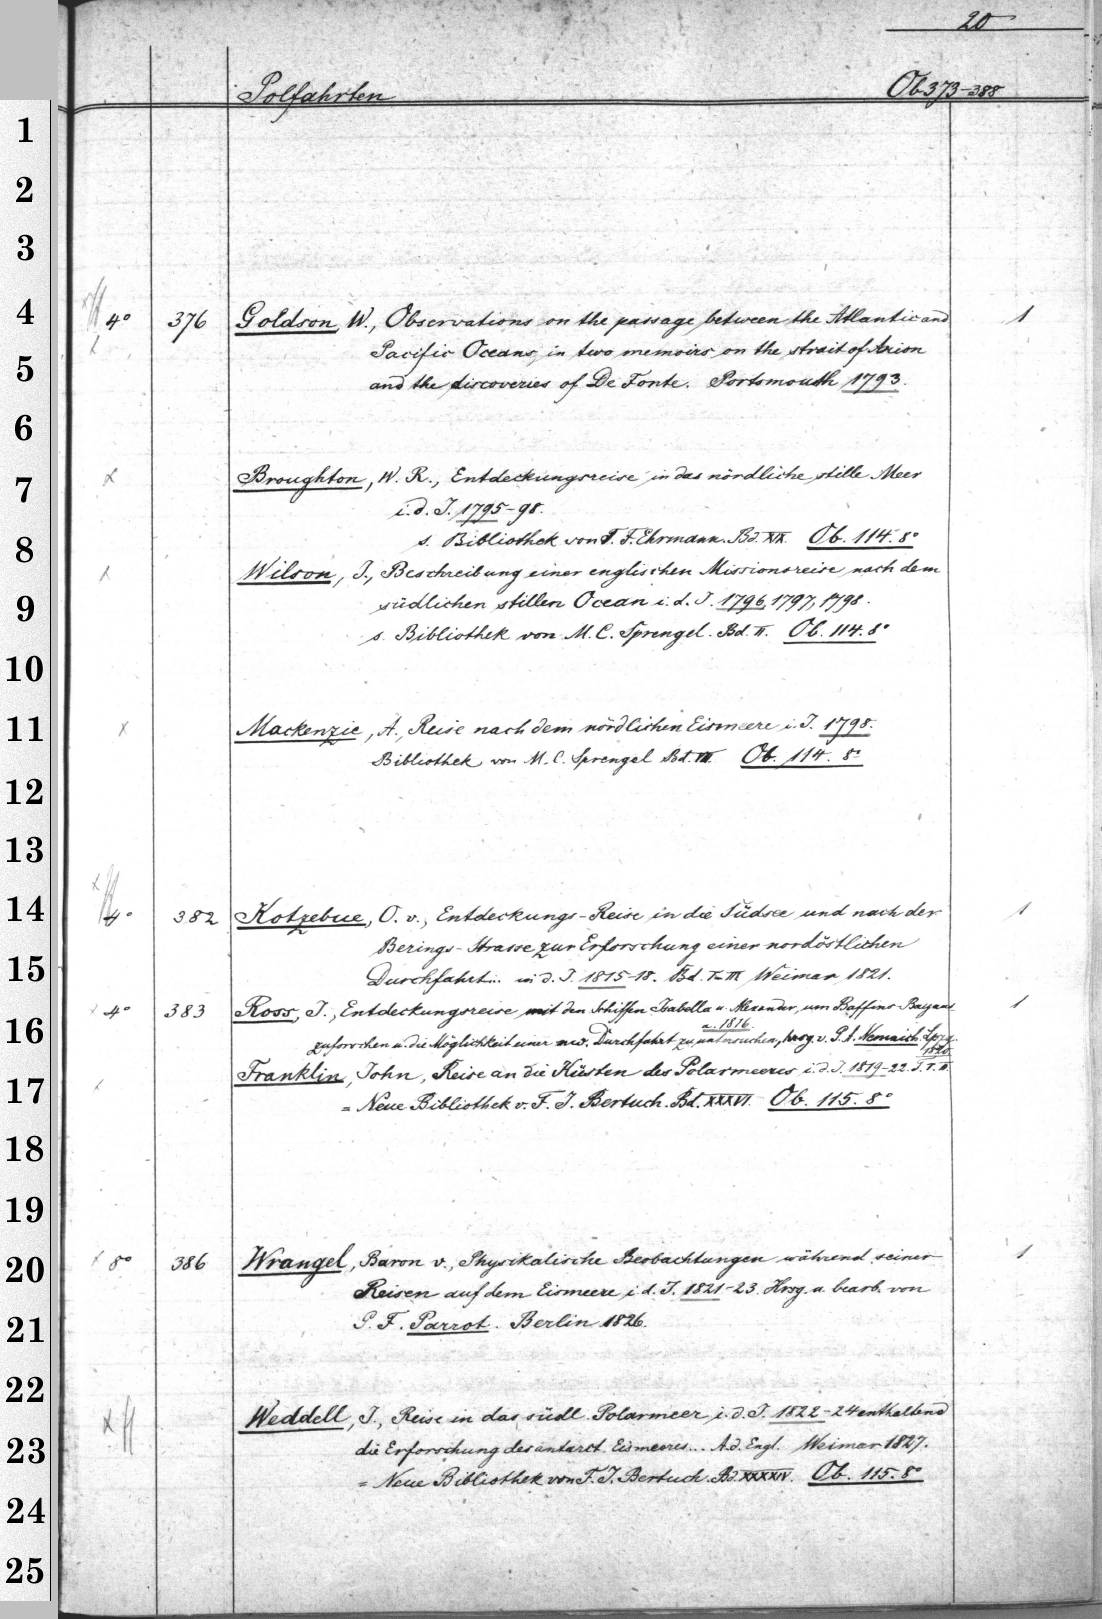 20
Polfahrten Ob 373-388
1
2
3
4 4° 376 Goldson, W., Observations on the passage between the Atlantic and 1
Pacific Oceans, in two memoirs on the strait of Anion
5 and the discoveries of De Fonte. Portsmouth 1793.
6
7 Broughton, W. R., Entdeckungsreise in das nördliche stille Meer
i. d. J. 1795-98.
8 s. Bibliothek von T. F. Ehrmann. Bd. XIX. Ob. 114. 8°
Wilson, J., Beschreibung einer englischen Missionsreise nach dem
9 südlichen stillen Ocean i. d. J. 1796, 1797, 1798.
s. Bibliothek von M. C. Sprengel. Bd. II. Ob. 114. 8°
10
11 Mackenzie, A., Reise nach dem nördlichen Eismeere i. J. 1798.
Bibliothek von M. C. Sprengel Bd. VII. Ob. 114. 8°
12
13
14 4° 382 Kotzebue, O. v., Entdeckungs-Reise in die Südsee und nach der 1
Berings-Strasse zur Erforschung einer nordöstlichen
15 Durchfahrt... in d. J. 1815-18. Bd. I-III Weimar 1821.
4° 383 Ross, J., Entdeckungsreise mit den Schiffen Isabella u. Alexander, um Baffins-Bay aus 1
a. 1816.
16 zuforschen u. die Möglichkeit einer nw. Durchfahrt zu untersuchen, hrsg. v. P. A. Nemnich. Lpzg.
1820.
17 Franklin, John, Reise an die Küsten des Polarmeeres i. d. J. 1819-22. T. I. II.
= Neue Bibliothek v. F. J. Bertuch. Bd. XXXVI. Ob. 115. 8°
18
19
20 8° 386 Wrangel, Baron v., Physikalische Beobachtungen während seiner 1
Reisen auf dem Eismeere i. d. J. 1821-23. Hrsg. u. bearb. von
21 G. F. Parrot. Berlin 1826.
22
Weddell, J., Reise in das südl. Polarmeer i. d. J. 1822-24 enthaltend
23 die Erforschung des antarct. Eismeeres... A. d. Engl. Weimar 1827.
= Neue Bibliothek von F. J. Bertuch. Bd. XXXXIV. Ob. 115. 8°
24
25